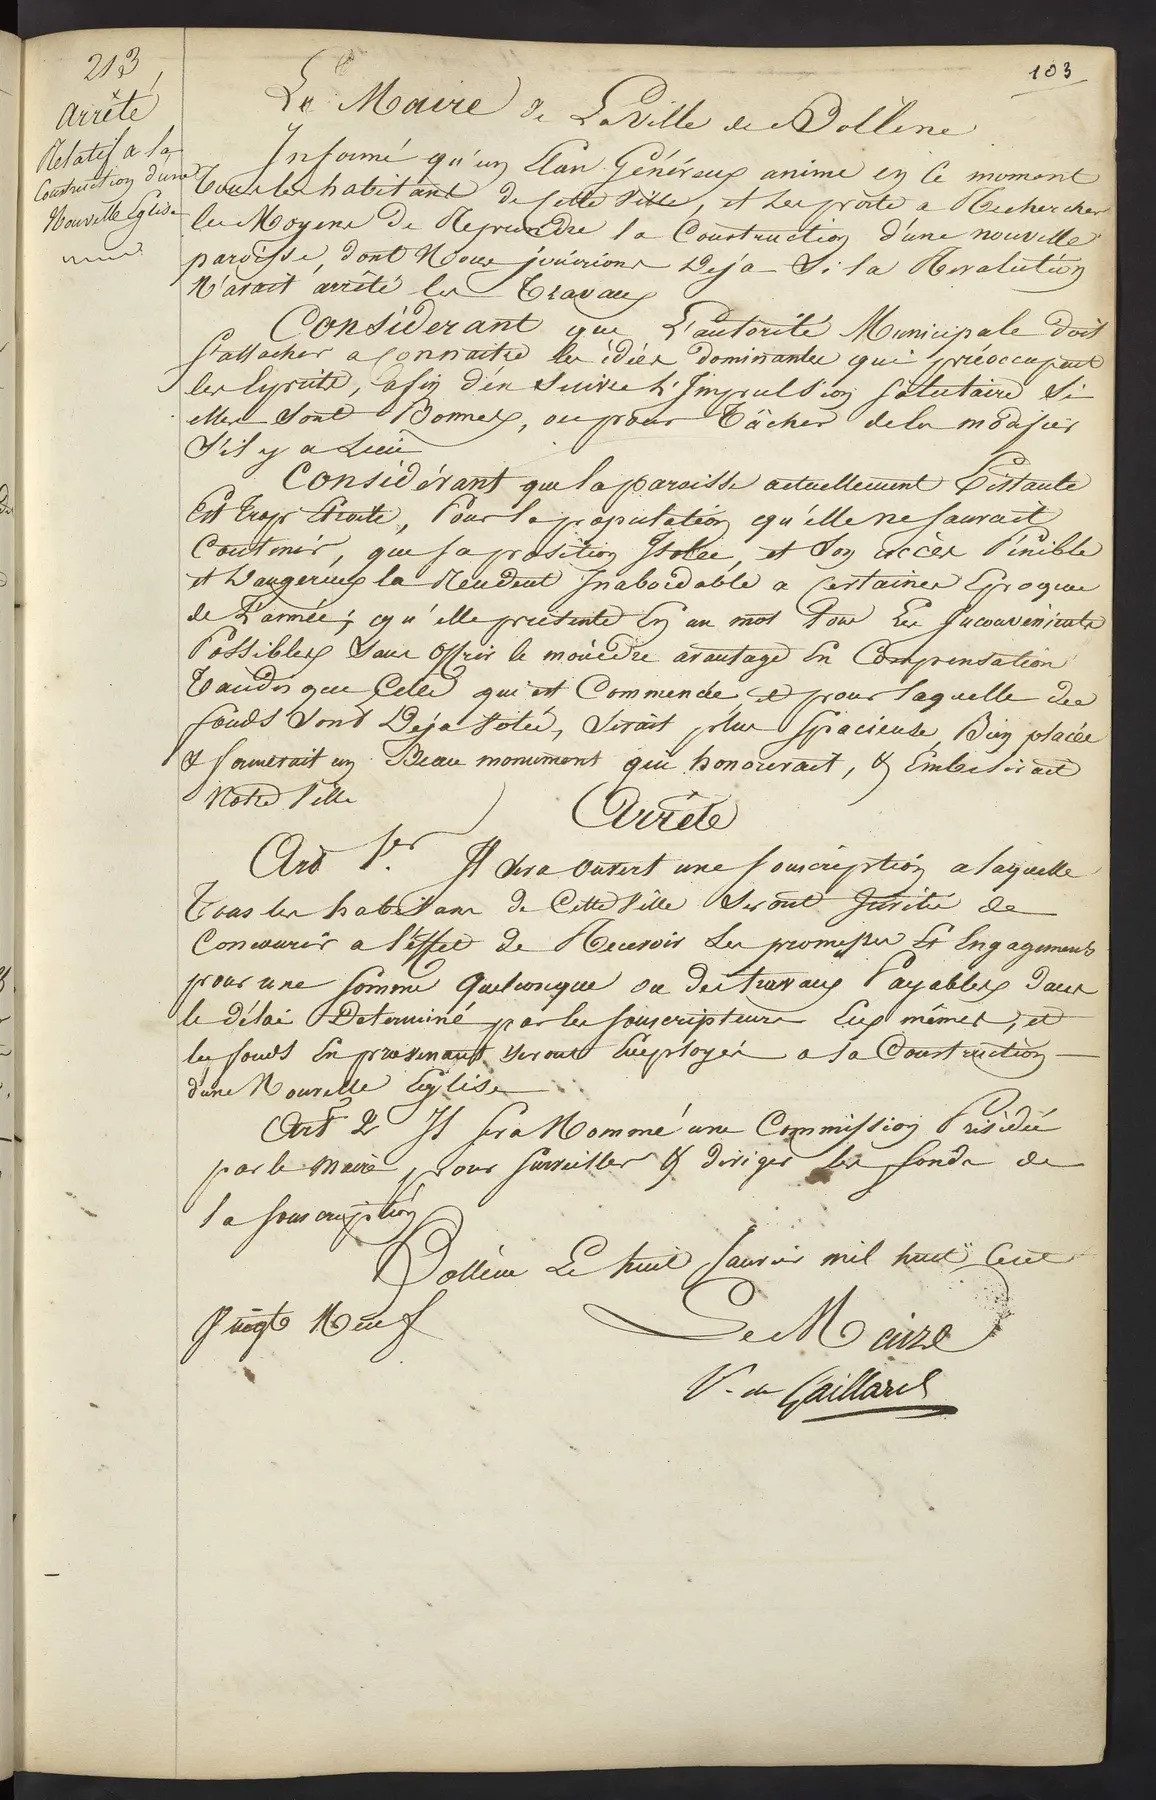 103
213
Arrêté
Relatif a la
Construction d'une
Nouvelle Eglise
Le Maire de La Ville de Bollène
Informé qu'un Elan Généreux anime en ce moment
tous les habitans de cette Ville, et les porte a Rechercher
les Moyens de Reprendre la Construction d'une nouvelle
paroisse, dont Nous jouirions Deja Si la Revolution
N'avait arrêté les Travaux
Considerant que L'autorité Municipale doit
s'attacher a connaitre les idées dominantes qui préoccupent
les Esprits, afin d'en suivre L'Impulsion salutaire Si
elles sont Bonnes, ou pour Tâcher de la modifier
S'il y a Lieu
Considérant que la paroisse actuellement Existante
Est trop Etroite, Pour la population qu'elle ne saurait
Contenir, que sa position Isolée, et son accès Pénible
et Dangereux la Rendent Inabordable a certaines Epoques
de L'année; qu'elle présente En un mot Tous Les Inconvénients
Possibles Sans Offrir le moindre avantage En Compensation
Tandis que Celle qui est Commencée et pour laquelle des
fonds sont Deja Votés, serait plus spacieuse, Bien placée
& formerait un Beau monument qui honorerait, & Embelirait
Notre Ville
Arrête
Art 1er. Il sera Ouvert une souscription a laquelle
Tous les habitans de Cette Ville Seront Invités de
Concourir a l'effet de Recevoir Les promesses Et Engagements
pour une somme Quelconque ou des travaux Payables dans
le délai Determiné par les souscripteurs Eux mêmes, et
les fonds En provenant seront Employés a la Construction
d'une Nouvelle Eglise
Art 2 Il sera Nommé une Commission Présidée
par le Maire pour surveiller & diriger les fonds de
la souscription
Bollène Le huit Janvier mil huit Cent
Vingt Neuf
Le Maire
V. de Gaillard